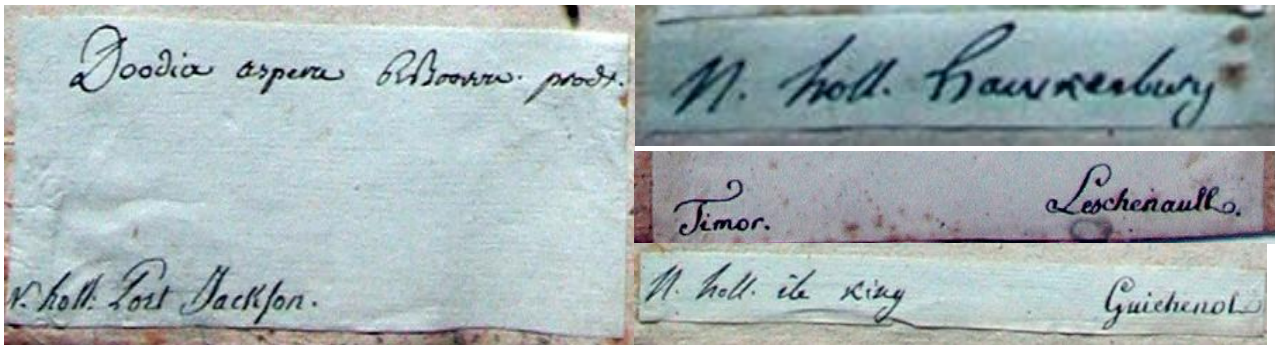 Doodia aspera RBrown. prodr.
N. holl. Port Jackson.
N. holl. hawkesbury
Timor. Leschenault.
N. holl. ile king Guichenot